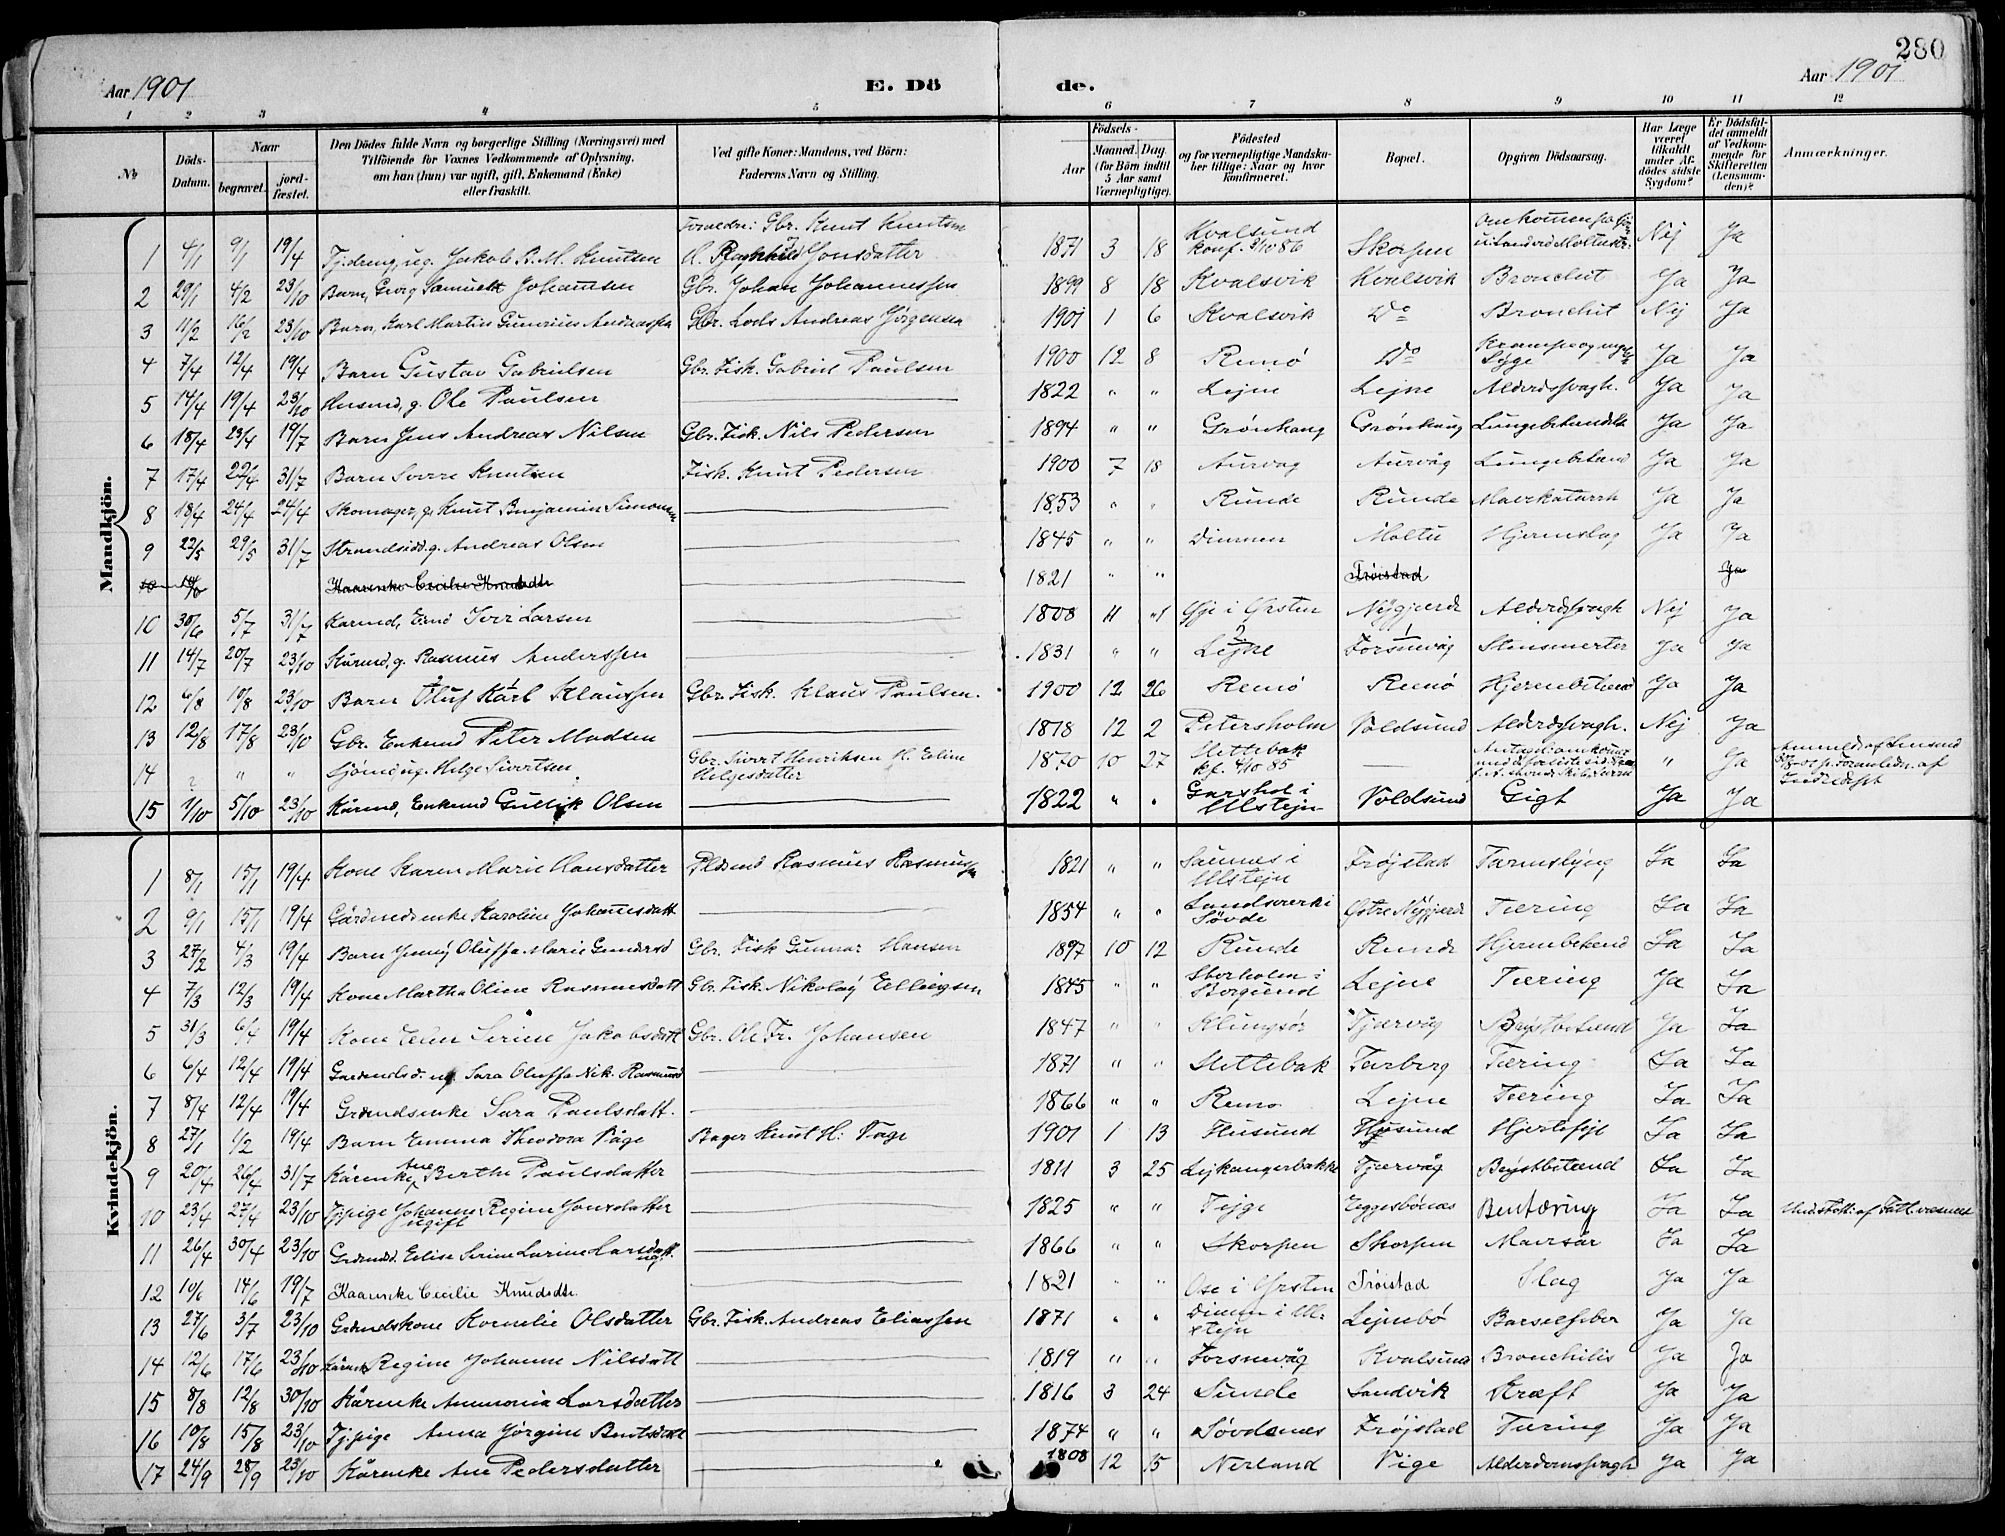 280
Aar 1901 E. Dö de. Aar 1901
1 2 3 4 5 6 7 8 9 10 11 12
No Döds-Datum. Naar begravet. jord-fæstet. Den Dödes fulde Navn og borgerlige Stilling (Næringsvei) med Tilföiende for Voxnes Vedkommende af Oplysning, om han (hun) var ugift, gift, Enkemand (Enke) eller fraskilt. Ved gifte Koner: Mandens, ved Börn: Faderens Navn og Stilling. Födsels- Aar Maaned. Dag. (for Börn indtil 5 Aar samt Værnepligtige). Födested og for værnepligtige Mandskaber tillige: Naar og hvor konfirmeret. Bopæl. Opgiven Dödsaarsag. Har Læge været tilkaldt under Afdödes sidste Sygdom? Er Dödsfaldet anmeldt af Vedkommende for Skifteretten (Lensmanden)? Anmærkninger.
Mandkjön.
Forældre: Gbr. Knut Knutsen
1 4/1 9/1 19/4 Tj.dreng, ug. Jakob R. M. Knutsen Ragnhild Jonsdatter 1871 3 18 Kvalsund konf. 3/10 86 Skorpen Nej Ja
2 29/1 4/2 23/10 Barn, Georg Samuel Johansen Gbr. Johan Johannessen 1899 8 18 Kvalsvik Kvalsvik Bronchit Ja Ja
3 11/2 16/2 23/10 Barn, Karl Martin Gunerius Andreassen Gbr. Lods Andreas Jørgensen 1901 1 6 Kvalsvik Do Bronchit Nej Ja
4 7/4 12/4 19/4 Barn Gustav Gabrielsen Gbr. Fisk. Gabriel Paulsen 1900 12 8 Remø Do Krampe og Syge Ja Ja
5 14/4 19/4 23/10 Husmd, g. Ole Paulsen 1822 " " Lejne Lejne Alderdsvagh. Ja Ja
6 18/4 23/4 19/7 Barn Jens Andreas Nilsen Gbr. Fisk. Nils Pedersen 1894 " " Grønhaug Grønhaug Lungebetændelse Ja Ja
7 17/4 22/4 31/7 Barn Sverre Knutsen Fisk. Knut Pedersen 1900 7 18 Aurvåg Aurvåg Lungebetænd Ja Ja
8 18/4 24/4 24/4 Skomager, g. Knut Benjamin Simonsen 1853 " " Runde Runde Mavekatarrh Ja Ja
9 22/5 29/5 31/7 Strandsidd. g. Andreas Olsen 1845 " " Dimmen Moltu Hjerneslag Ja Ja
10 10/6 Kaarenke Cecilie Knudsdtr 1821 " " Trøistad Ja
10 30/6 5/7 31/7 Karmd, Enmd Iver Larsen 1808 4 Øye i Ørsten Nøgjerde Alderdsvagh Nej Ja
11 14/7 20/7 23/10 Kårmd, g. Rasmus Anderssen 1831 " " Lejne Forsnevåg Stensmerter Ja Ja
12 6/8 10/8 23/10 Barn Oluf Kårl Klaussen Gbr. Fisk. Klaus Paulsen. 1900 12 26 Remø Remø Hjernebetænd Ja Ja
13 12/8 17/8 23/10 Gbr. Enkmd Peter Madsen 1818 12 2 Petersholm Voldsund Alderdsvagh. Nej Ja
14 ? " " Sjømd ug. Helge Sivertsen Gbr. Sivert Henriksen H. Eline Helgesdatter 1870 10 27 Slettebak kf. 4/10 85 — " Ja
15 1/10 5/10 23/10 Kårmd, Enkemd Gullik Olsen 1822 " " Garshol i Ulstejn Voldsund Gigt Ja Ja
Kvindekjön.
1 8/1 15/1 19/4 Kone Karen Marie Hansdatter Rasmus Rasmussen 1821 " " Saunes i Ulstejn Frøjstad Tarmslyng Ja Ja
2 9/1 15/1 19/4 Gårdmdsenke Karoline Johannesdatt 1854 " " Landsverk i Søvde Østre Nøgjerde Tæring Ja Ja
3 27/2 4/3 19/4 Barn Jenny Oluffa Marie Gunarsd Gbr. Fisk Gunnar Hansen 1897 10 12 Runde Runde Hjernbetænd Ja Ja
4 7/3 12/3 19/4 Kone Martha Oline Rasmusdatt Gbr. Fisk. Nikolay Ellingsen 1845 " " Storholm i Borgund Lejne Tæring Ja Ja
5 31/3 6/4 19/4 Kone Elen Serine Jakobsdatt Gbr. Ole Fr. Johansen 1847 " " Klungsør Tjærvåg Brystbetænd Ja Ja
6 6/4 12/4 19/4 Gardmdsd. ug. Sara Oluffa Nik. Rasmusd 1871 " " Slettebak Torberg Tæring Ja Ja
7 8/4 12/4 19/4 Grdmdsenke Sara Paulsdatt. 1866 " " Remø Lejne Tæring Ja Ja
8 27/1 1/2 19/4 Barn Emma Theodora Våge Bager Knut H. Våge 1901 1 13 Husund Husund Hjertefejl Ja Ja
9 20/4 26/4 31/7 Kårenke Ane Berthe Paulsdatter 1811 3 25 Lejkangerbakke Tjærvåg Brystbetænd Ja Ja
10 23/4 27/4 23/10 Tjpige Johanne Regine Jonsdatter ugift 1825 " " Tejge Eggesbønæs Bentæring Ja Ja Understøtt: af Fattl.væsenet
11 26/4 30/4 23/10 Grdmdsd. Elise Serine Larine Larsdatt. ug 1866 " " Skorpen Skorpen Mavesår Ja Ja
12 10/6 14/6 19/7 Kaarenke Cecilie Knudsdtr. 1821 " " Ose i Ørsten Trøistad Slag Ja Ja
13 27/6 3/7 23/10 Grdmdskone Kornelie Olsdatter Gbr. Fisk. Andreas Eliassen 1871 " " Dimmen i Ulstejn Lejnebø Barselfeber Ja Ja
14 12/6 17/6 23/10 Kårenk Regine Johanne Nilsdatt 1819 " " Forsnevåg Kvalsund Bronchitis Ja Ja
15 8/8 12/8 30/10 Kårenke Ammonia Larsdatter 1816 3 24 Sunde Sandvik Kræft Ja Ja
16 10/8 15/8 23/10 Tj.pige Anna Jørgine Berntsdatt 1874 " " Søvdenes Frøjstad Tæring Ja Ja
17 24/9 28/9 23/10 Kårenke Ane Pedersdatter 1808 12 15 Nerland Vige Alderdomssvagh Ja Ja